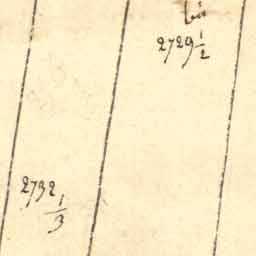 2729 1/2
2732 1/3